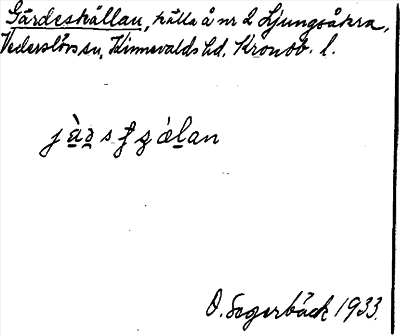 Gärdeskällan, källa å nr 2 Ljungsåkra,
Vederslövs sn, Kinnevalds hd. Kronob. l.
O. Sagerbäck 1933.